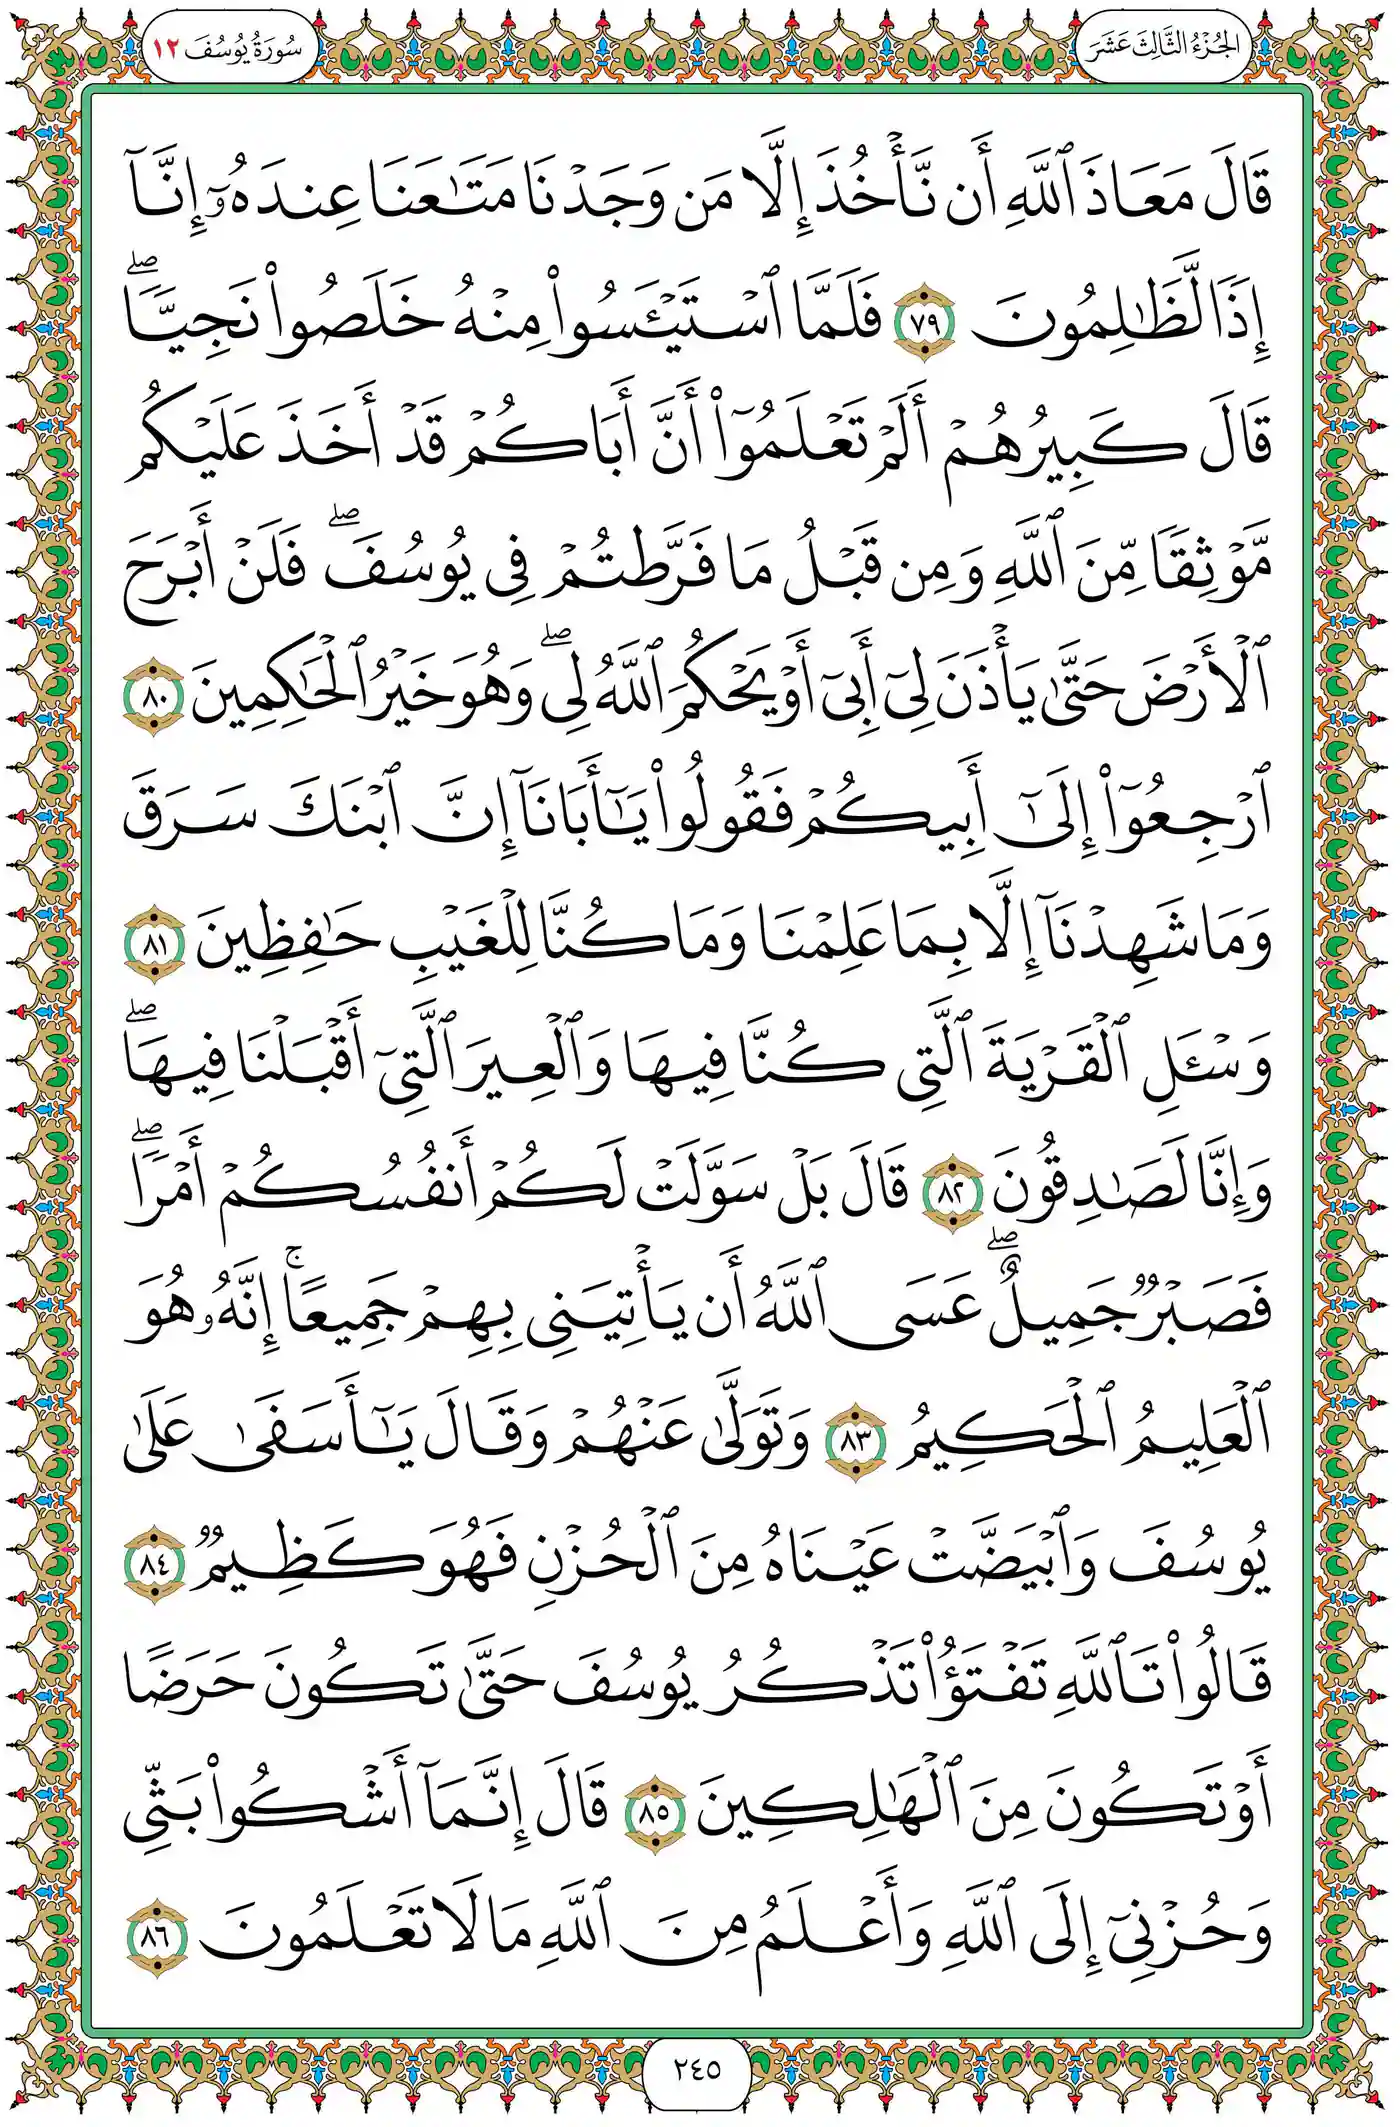 الجُزْءُ الثَّالِثَ عَشَرَ
سُورَةُ يُوسُفَ ١٢
قَالَ مَعَاذَ ٱللَّهِ أَن نَّأْخُذَ إِلَّا مَن وَجَدْنَا مَتَـٰعَنَا عِندَهُۥٓ إِنَّآ
إِذًا لَّظَـٰلِمُونَ ٧٩ فَلَمَّا ٱسْتَيْـَٔسُوا۟ مِنْهُ خَلَصُوا۟ نَجِيًّا ۖ
قَالَ كَبِيرُهُمْ أَلَمْ تَعْلَمُوٓا۟ أَنَّ أَبَاكُمْ قَدْ أَخَذَ عَلَيْكُم
مَّوْثِقًا مِّنَ ٱللَّهِ وَمِن قَبْلُ مَا فَرَّطتُمْ فِى يُوسُفَ ۖ فَلَنْ أَبْرَحَ
ٱلْأَرْضَ حَتَّىٰ يَأْذَنَ لِىٓ أَبِىٓ أَوْ يَحْكُمَ ٱللَّهُ لِى ۖ وَهُوَ خَيْرُ ٱلْحَـٰكِمِينَ ٨٠
ٱرْجِعُوٓا۟ إِلَىٰٓ أَبِيكُمْ فَقُولُوا۟ يَـٰٓأَبَانَآ إِنَّ ٱبْنَكَ سَرَقَ
وَمَا شَهِدْنَآ إِلَّا بِمَا عَلِمْنَا وَمَا كُنَّا لِلْغَيْبِ حَـٰفِظِينَ ٨١
وَسْـَٔلِ ٱلْقَرْيَةَ ٱلَّتِى كُنَّا فِيهَا وَٱلْعِيرَ ٱلَّتِىٓ أَقْبَلْنَا فِيهَا ۖ
وَإِنَّا لَصَـٰدِقُونَ ٨٢ قَالَ بَلْ سَوَّلَتْ لَكُمْ أَنفُسُكُمْ أَمْرًا ۖ
فَصَبْرٌ جَمِيلٌ ۖ عَسَى ٱللَّهُ أَن يَأْتِيَنِى بِهِمْ جَمِيعًا ۚ إِنَّهُۥ هُوَ
ٱلْعَلِيمُ ٱلْحَكِيمُ ٨٣ وَتَوَلَّىٰ عَنْهُمْ وَقَالَ يَـٰٓأَسَفَىٰ عَلَىٰ
يُوسُفَ وَٱبْيَضَّتْ عَيْنَاهُ مِنَ ٱلْحُزْنِ فَهُوَ كَظِيمٌ ٨٤
قَالُوا۟ تَٱللَّهِ تَفْتَؤُا۟ تَذْكُرُ يُوسُفَ حَتَّىٰ تَكُونَ حَرَضًا
أَوْ تَكُونَ مِنَ ٱلْهَـٰلِكِينَ ٨٥ قَالَ إِنَّمَآ أَشْكُوا۟ بَثِّى
وَحُزْنِىٓ إِلَى ٱللَّهِ وَأَعْلَمُ مِنَ ٱللَّهِ مَا لَا تَعْلَمُونَ ٨٦
٢٤٥